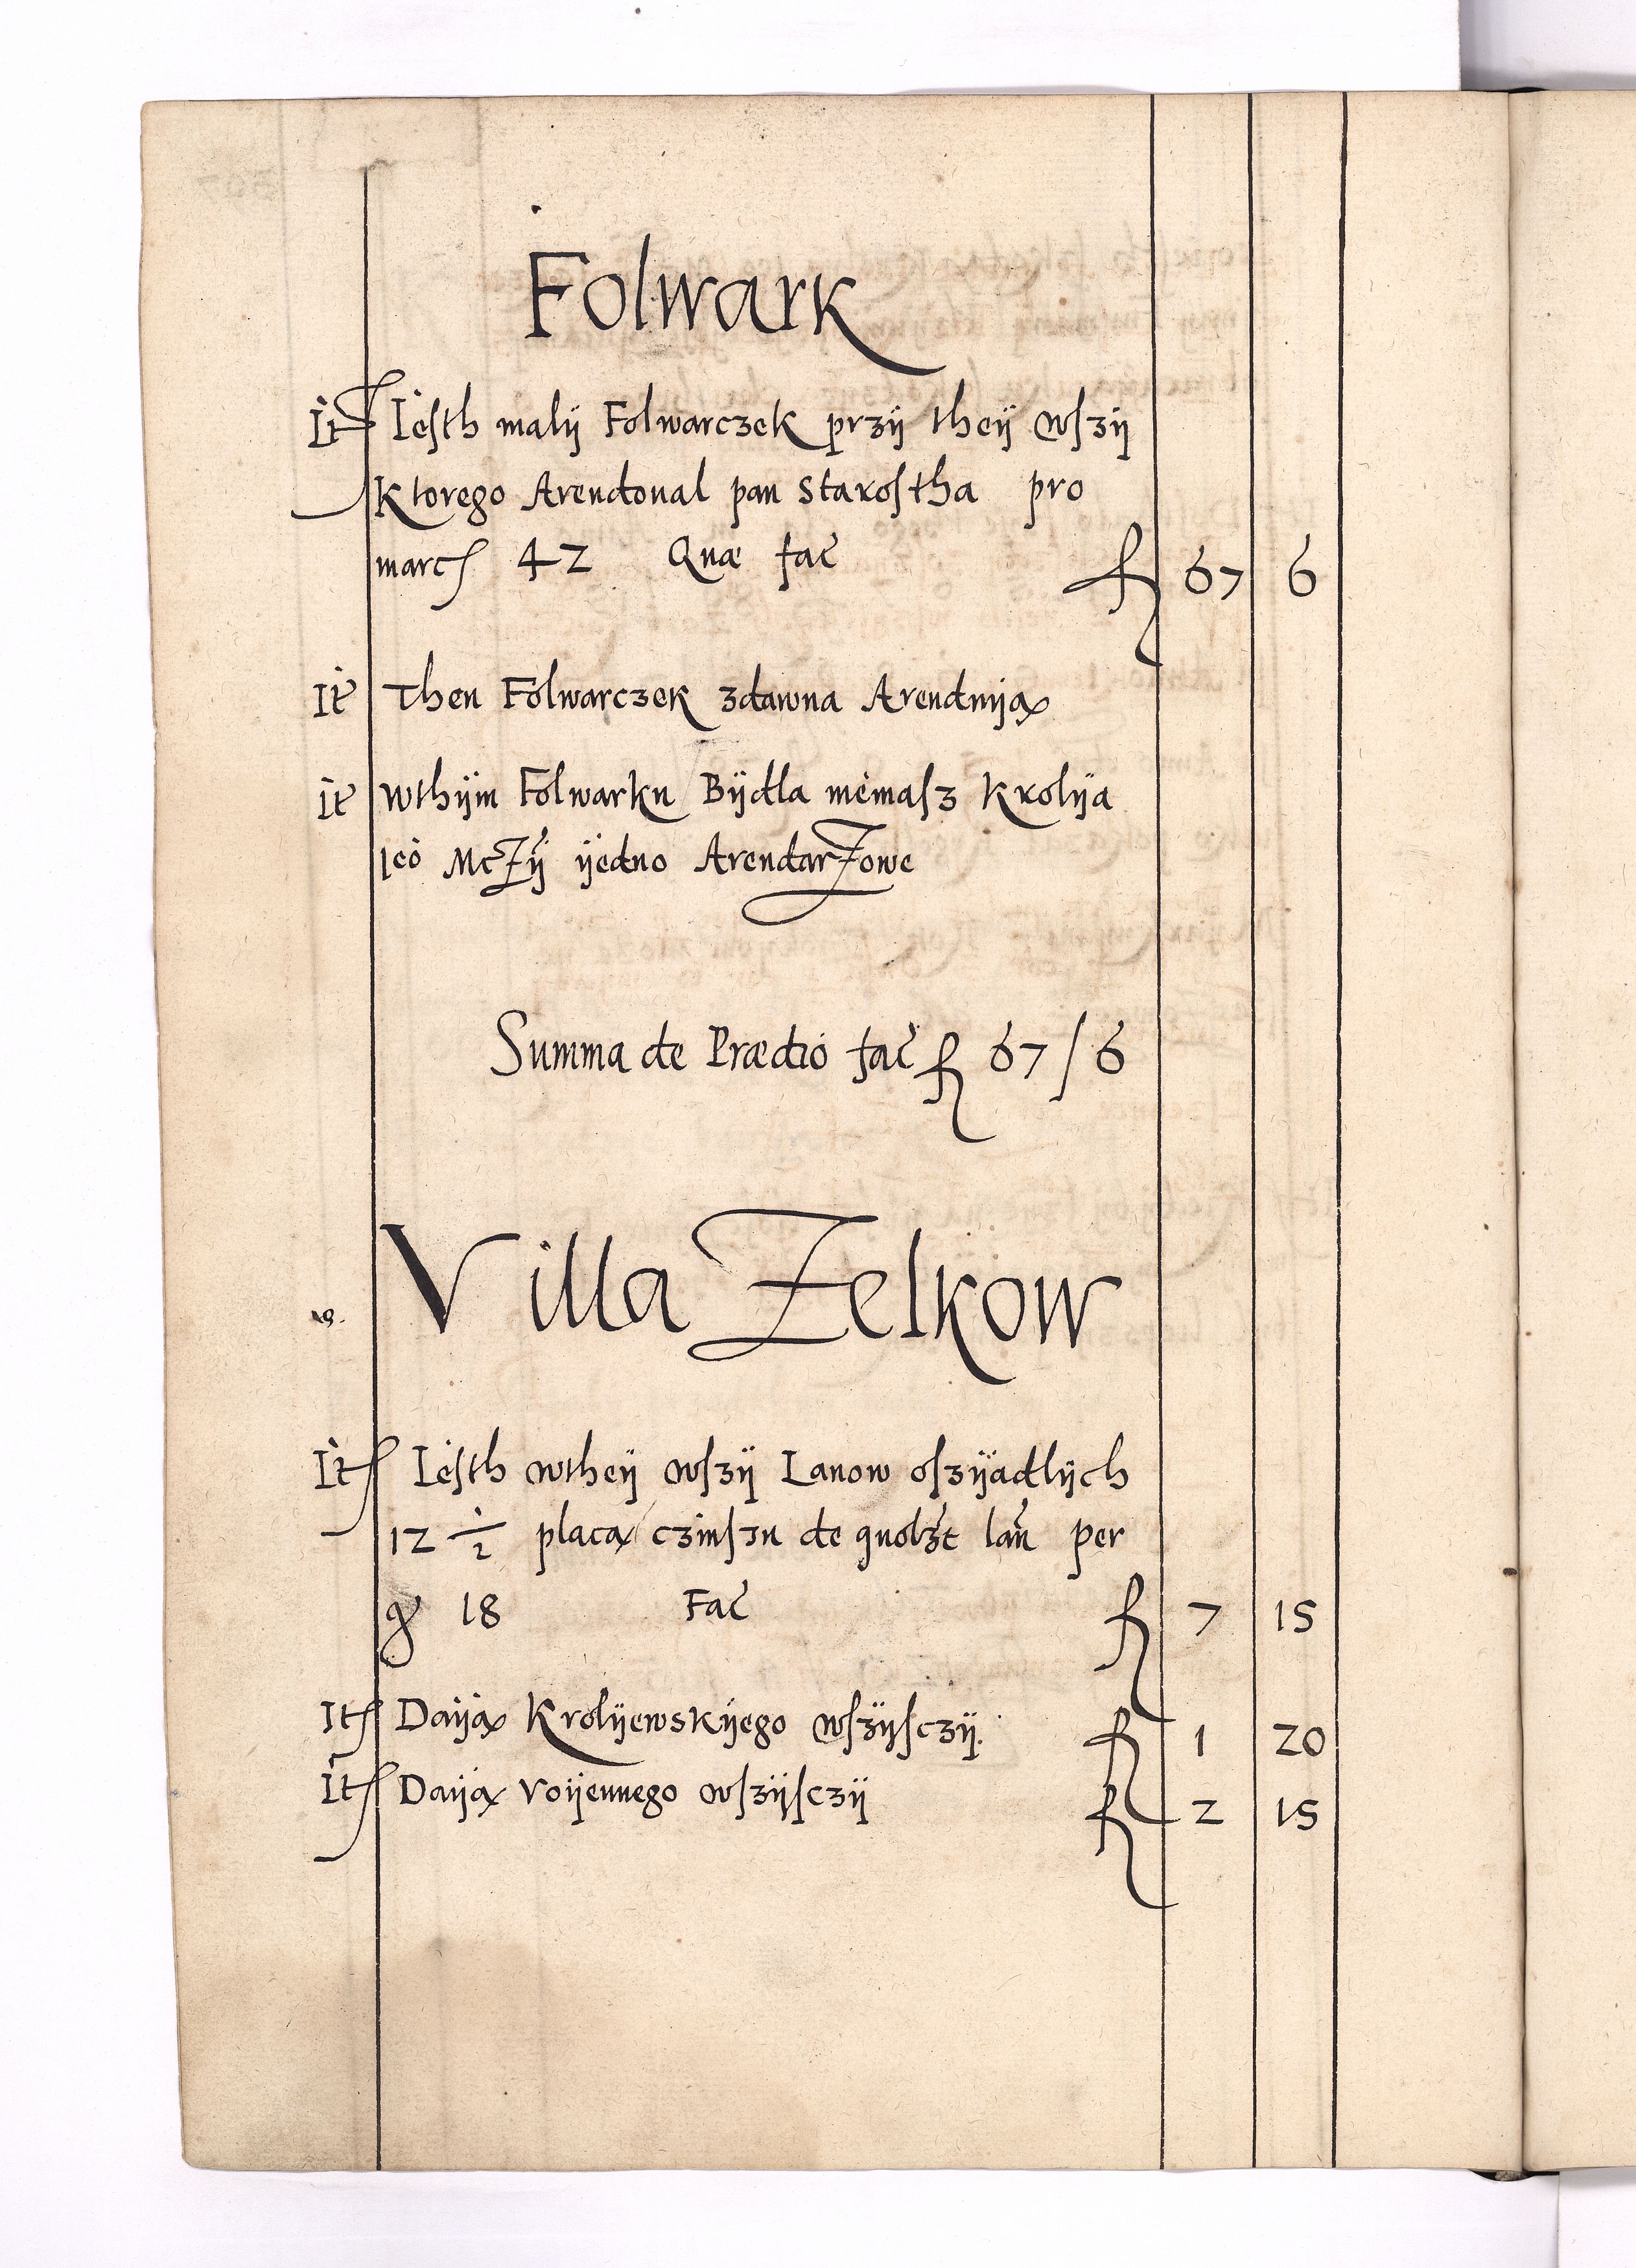 Folwark
It Iesth malÿ Folwarczek przÿ theÿ wſzÿ
Ktorego Arendoual pan Staroſtha pro
marcſ 42 Quæ fac̃ fl 67 6
It Then Folwarczek zdawna Arenduÿą
It Wthÿm Folwarku Bÿdla niemaſz Krolÿa
Ieo Mczÿ ÿedno Arendarzowe
Summa de Prædio fac̃ fl 67/6
Villa Zelkow
It Iesth wtheÿ wſzÿ Lanow oſzÿadlÿch
12 1/2 placą czinſzu de quolzt lan̄ per
gr 18 Fac̃ fl 7 15
It Daÿą Krolÿewskÿego wſzÿſczÿ fl 1 20
It Daÿą Voÿennego wſzÿſczÿ fl 2 15